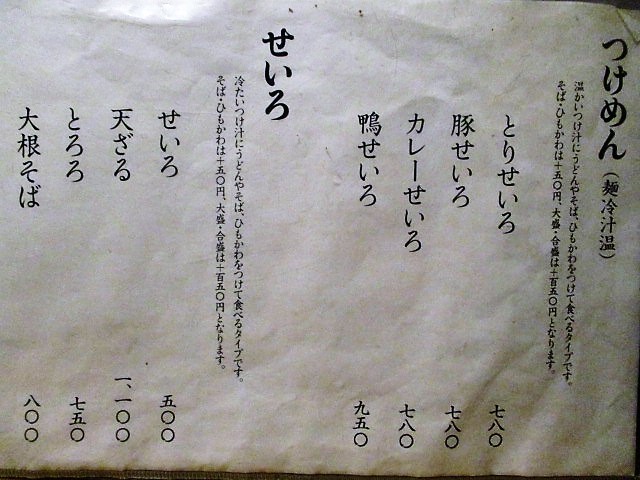 つけめん（麺冷汁温）
温かいつけ汁にうどんやそば、ひもかわをつけて食べるタイプです。
そば・ひもかわは＋五〇円、大盛・合盛は＋百五〇円となります。
とりせいろ 七八〇
豚せいろ 七八〇
カレーせいろ 七八〇
鴨せいろ 九五〇
せいろ
冷たいつけ汁にうどんやそば、ひもかわをつけて食べるタイプです。
そば・ひもかわは＋五〇円、大盛・合盛は＋百五〇円となります。
せいろ 五〇〇
天ざる 一、一〇〇
とろろ 七五〇
大根そば 八〇〇